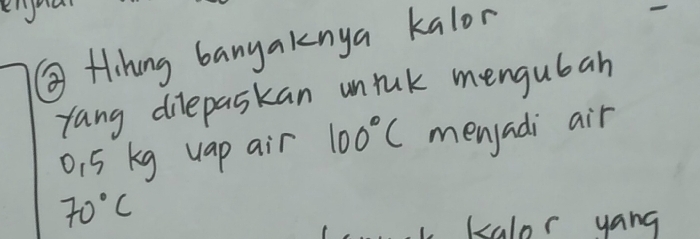 ② Hitung banyaknya kalor
yang dilepaskan untuk mengubah
0,5 kg uap air 100°C menjadi air
70°C
kalor yang